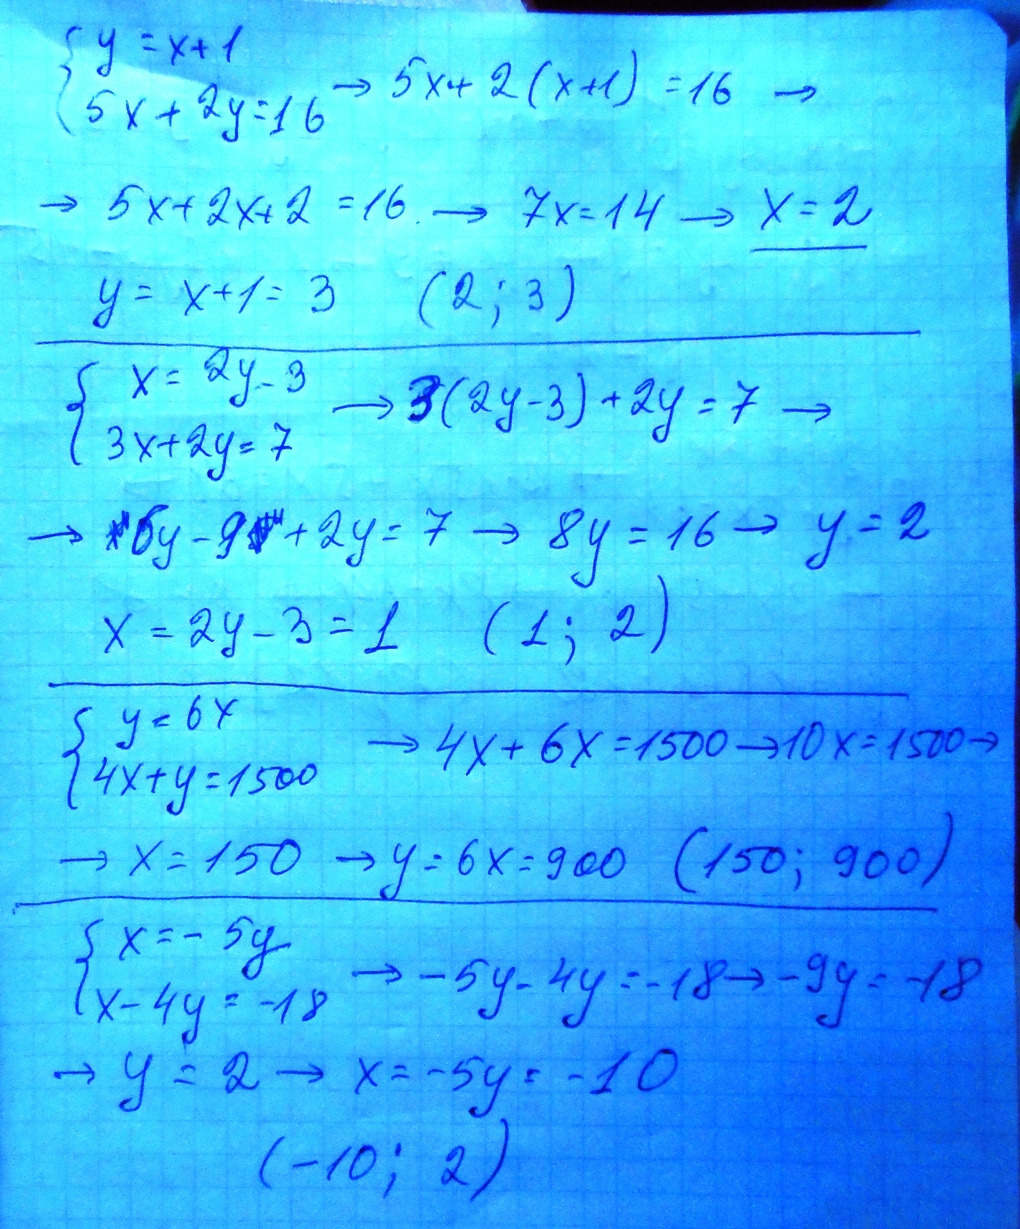 { y = x+1
5x + 2y = 16 → 5x + 2(x+1) = 16 →
→ 5x+2x+2 = 16. → 7x = 14 → x = 2
y = x+1 = 3 (2; 3)
{ x = 2y - 3
3x+2y = 7 → 3(2y-3) + 2y = 7 →
→ 6y - 9 + 2y = 7 → 8y = 16 → y = 2
x = 2y - 3 = 1 (1; 2)
{ y = 6x
4x+y = 1500 → 4x + 6x = 1500 → 10x = 1500 →
→ x = 150 → y = 6x = 900 (150; 900)
{ x = -5y
x - 4y = -18 → -5y - 4y = -18 → -9y = -18
→ y = 2 → x = -5y = -10
(-10; 2)